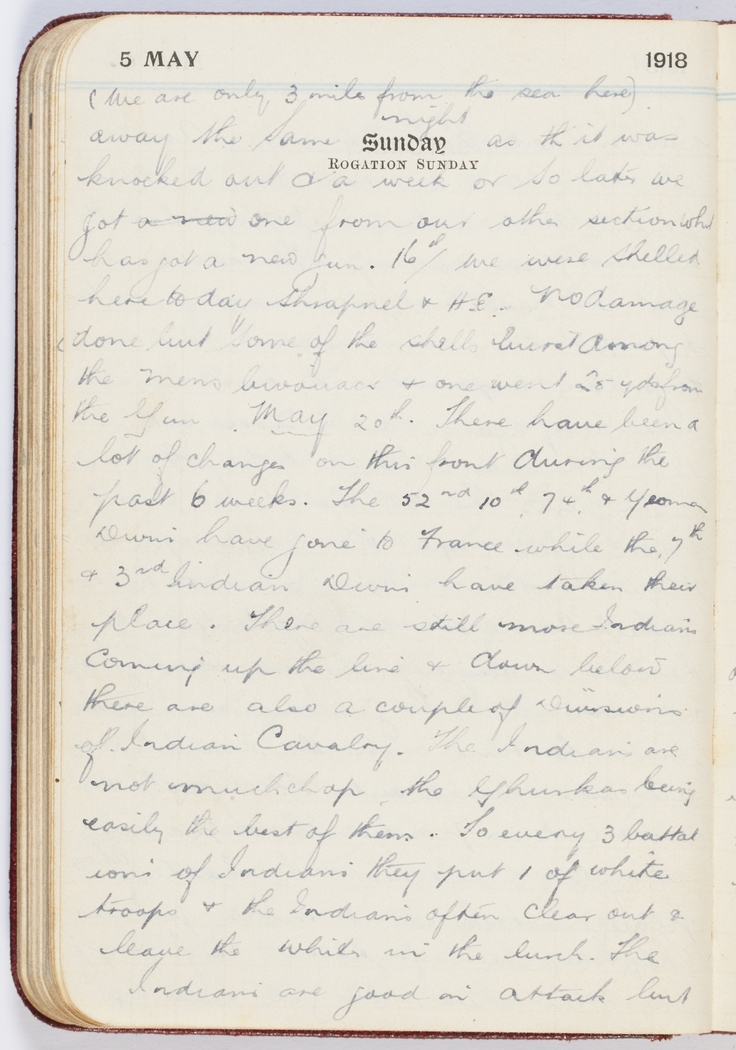 5 MAY 1918
(We are only 3 mile from the sea here)
away the same night as th it was
Sunday
ROGATION SUNDAY
knocked out & a week or so later we
got a new one from our other section
has got a new gun. 16th/ we were shelled
here to day Shrapnel & H.E. No damage
done but some of the shells burst among
the mens bivouacs & one went 25 yds from
the Gun. May 20th. There have been a
lot of changes on this front during the
past 6 weeks. The 52nd 10th, 74th, &
Divns have gone to France while the 7th
& 3rd Indian Divns have taken their
place. There are still more Indians
Coming up the line & down below
there are also a couple of Divisions
of Indian Cavalry. The Indians are
not much chop, the Ghurkas being
easily the best of them. To every 3 battal
ions of Indians they put 1 of white
troops & the Indians often clear out &
leave the whites in the lurch. The
Indians are good in attack but